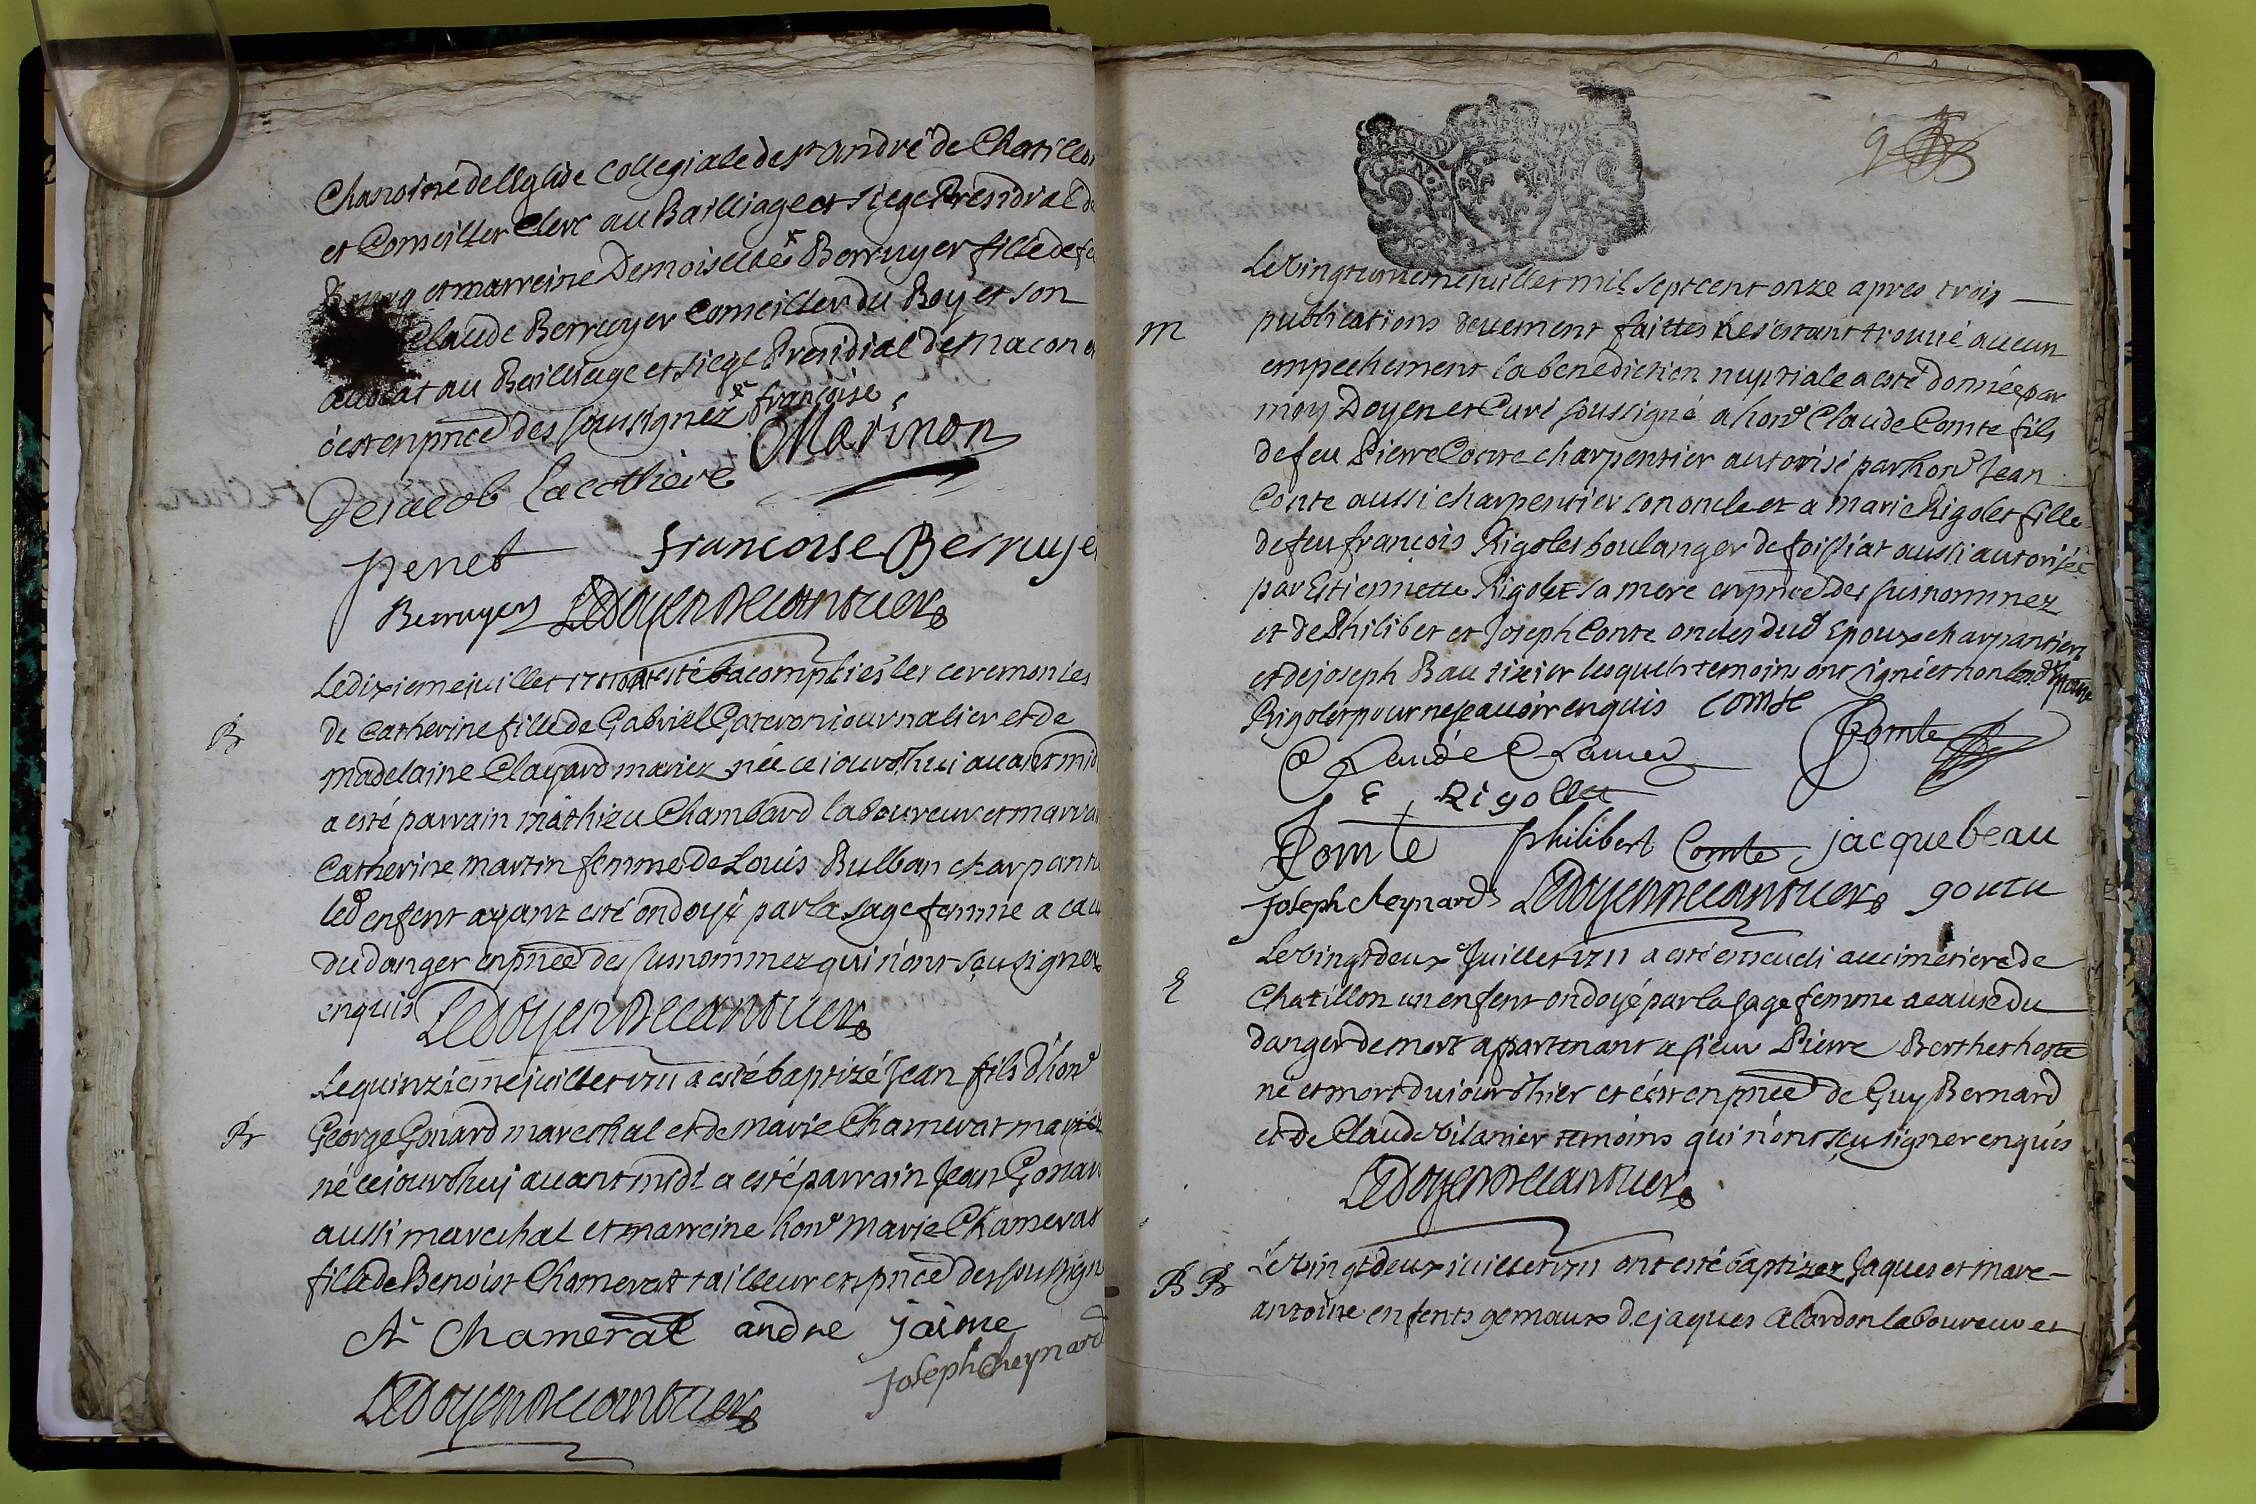 Chanoine de l'Eglise Collegiale de st André de Chatillon
et Conseiller Clerc au Bailliage et siege Presidial de
Bourg et marreine Demoiselle x Berruyer fille de feu
Claude Berruyer Conseiller du Roy et son
advocat au Bailliage et siege Presidial de Macon et
c'est en pnce des sousignez x françoise
Marinon
Dejacob Lacottiere
penet francoise Berruyer
Berruyer Ledoyen
Le dixieme juillet 1711 ont esté acomplies les ceremonies
B de Catherine fille de Gabriel Gateron journalier et de
madelaine Clayard mariez née ce jourdhui avant midi
a esté parrain mathieu Chambard laboureur et marraine
Catherine martin femme de Louis Bulban charpantier
led enfent ayant esté ondoyé par la sage femme a cause
du danger en pnce des susnommez qui n'ont sçu signer
enquis Ledoyen
Le quinzieme juillet 1711 a esté baptizé Jean fils d'hon
B George Gonard marechal et de marie Chamerat mariez
né ce jourdhuy avant midi a esté parrain Jean Gonard
aussi marechal et marreine hon marie Chamerat
fille de Benoist Chamerat tailleur en pnce des soussignez
Chamerat andre jaime
Joseph Cheynard
Ledoyen
9
Le vingt unieme juillet mil sept cent onze apres trois
m publications deuement faittes ne s'estant trouvé aucun
empechement la benediction nuptiale a esté donnée par
moy Doyen et Curé soussigné a hon Claude Comte fils
de feu Pierre Comte charpentier autorisé par hon Jean
Conte aussi charpentier son oncle et a marie Rigolet fille
de feu francois Rigolet boulanger de foissiat aussi autorisée
par Estiennette Rigolet sa mere en pnce des susnommez
et de Philibert et Joseph Conte oncles dud Epoux charpantiers
et de joseph Bau tixier lesquels temoins ont signé et non lad Epouse
Rigolet pour ne sçavoir enquis comte
Claude Comte
E Rigollet
Comte philibert Comte jacque beau
Joseph cheynard Ledoyen goutu
Le vingt deux Juillet 1711 a esté enseveli au cimetiere de
E Chatillon un enfent ondoyé par la sage femme a cause du
danger de mort appartenant a sieur Pierre Berthet hoste
né et mort du jour d'hier et c'est en pnce de Guy Bernard
et de Claude Vilanier temoins qui n'ont sçu signer enquis
Ledoyen
Le vingt deux juillet 1711 ont esté baptizez Jaques et marc-
B B antoine enfents gemaux de jaques Alardon laboureur et